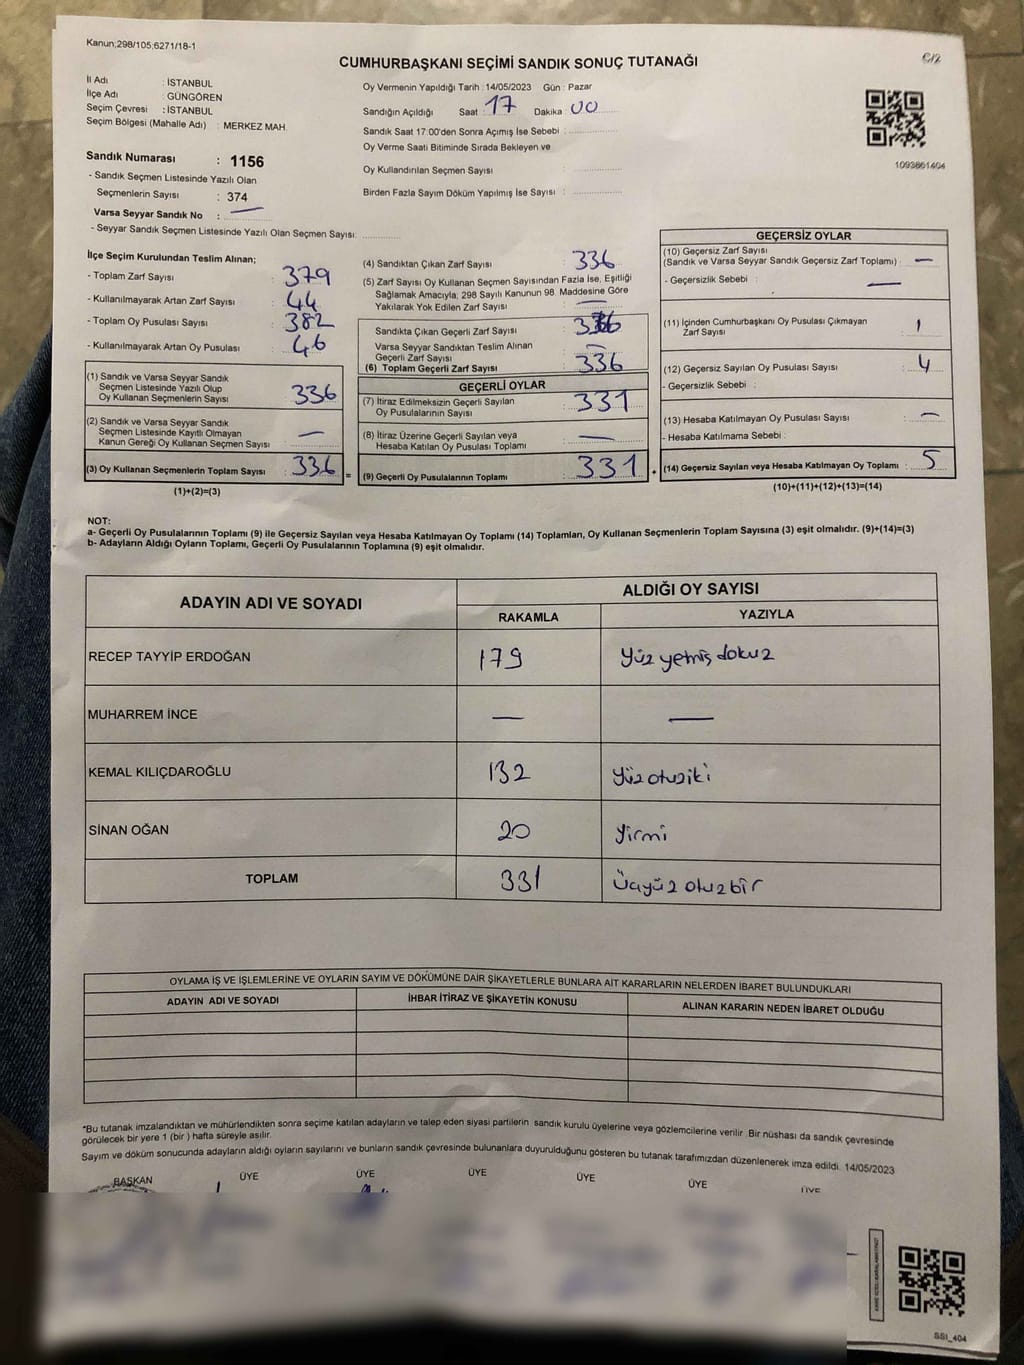 Kanun;298/105;6271/18-1
C/2
CUMHURBAŞKANI SEÇİMİ SANDIK SONUÇ TUTANAĞI
İl Adı : İSTANBUL
İlçe Adı : GÜNGÖREN
Seçim Çevresi : İSTANBUL
Seçim Bölgesi (Mahalle Adı) : MERKEZ MAH.
Sandık Numarası : 1156
- Sandık Seçmen Listesinde Yazılı Olan
Seçmenlerin Sayısı : 374
Varsa Seyyar Sandık No : —
- Seyyar Sandık Seçmen Listesinde Yazılı Olan Seçmen Sayısı: ............
Oy Vermenin Yapıldığı Tarih : 14/05/2023 Gün : Pazar
Sandığın Açıldığı Saat : 17 Dakika 00
Sandık Saat 17:00'den Sonra Açımış İse Sebebi : ............
Oy Verme Saati Bitiminde Sırada Bekleyen ve
Oy Kullandırılan Seçmen Sayısı : ............
Birden Fazla Sayım Döküm Yapılmış İse Sayısı : ............
1093861404
İlçe Seçim Kurulundan Teslim Alınan;
- Toplam Zarf Sayısı : 379
- Kullanılmayarak Artan Zarf Sayısı : 44
- Toplam Oy Pusulası Sayısı : 382
- Kullanılmayarak Artan Oy Pusulası : 46
(1) Sandık ve Varsa Seyyar Sandık
Seçmen Listesinde Yazılı Olup
Oy Kullanan Seçmenlerin Sayısı : 336
(2) Sandık ve Varsa Seyyar Sandık
Seçmen Listesinde Kayıtlı Olmayan
Kanun Gereği Oy Kullanan Seçmen Sayısı : —
(3) Oy Kullanan Seçmenlerin Toplam Sayısı : 336 =
(1)+(2)=(3)
(4) Sandıktan Çıkan Zarf Sayısı : 336
(5) Zarf Sayısı Oy Kullanan Seçmen Sayısından Fazla İse, Eşitliği
Sağlamak Amacıyla; 298 Sayılı Kanunun 98. Maddesine Göre
Yakılarak Yok Edilen Zarf Sayısı : —
Sandıkta Çıkan Geçerli Zarf Sayısı : 336
Varsa Seyyar Sandıktan Teslim Alınan
Geçerli Zarf Sayısı : —
(6) Toplam Geçerli Zarf Sayısı : 336
GEÇERLİ OYLAR
(7) İtiraz Edilmeksizin Geçerli Sayılan
Oy Pusulalarının Sayısı : 331
(8) İtiraz Üzerine Geçerli Sayılan veya
Hesaba Katılan Oy Pusulası Toplamı : —
(9) Geçerli Oy Pusulalarının Toplamı : 331 +
GEÇERSİZ OYLAR
(10) Geçersiz Zarf Sayısı
(Sandık ve Varsa Seyyar Sandık Geçersiz Zarf Toplamı) : —
- Geçersizlik Sebebi : —
(11) İçinden Cumhurbaşkanı Oy Pusulası Çıkmayan
Zarf Sayısı : 1
(12) Geçersiz Sayılan Oy Pusulası Sayısı : 4
- Geçersizlik Sebebi :
(13) Hesaba Katılmayan Oy Pusulası Sayısı : —
- Hesaba Katılmama Sebebi :
(14) Geçersiz Sayılan veya Hesaba Katılmayan Oy Toplamı : 5
(10)+(11)+(12)+(13)=(14)
NOT:
a- Geçerli Oy Pusulalarının Toplamı (9) ile Geçersiz Sayılan veya Hesaba Katılmayan Oy Toplamı (14) Toplamları, Oy Kullanan Seçmenlerin Toplam Sayısına (3) eşit olmalıdır. (9)+(14)=(3)
b- Adayların Aldığı Oyların Toplamı, Geçerli Oy Pusulalarının Toplamına (9) eşit olmalıdır.
ADAYIN ADI VE SOYADI
ALDIĞI OY SAYISI
RAKAMLA YAZIYLA
RECEP TAYYİP ERDOĞAN 179 Yüz yetmiş dokuz
MUHARREM İNCE — —
KEMAL KILIÇDAROĞLU 132 Yüz otuziki
SİNAN OĞAN 20 Yirmi
TOPLAM 331 Üçyüz otuzbir
OYLAMA İŞ VE İŞLEMLERİNE VE OYLARIN SAYIM VE DÖKÜMÜNE DAİR ŞİKAYETLERLE BUNLARA AİT KARARLARIN NELERDEN İBARET BULUNDUKLARI
ADAYIN ADI VE SOYADI İHBAR İTİRAZ VE ŞİKAYETİN KONUSU ALINAN KARARIN NEDEN İBARET OLDUĞU
*Bu tutanak imzalandıktan ve mühürlendikten sonra seçime katılan adayların ve talep eden siyasi partilerin sandık kurulu üyelerine veya gözlemcilerine verilir. Bir nüshası da sandık çevresinde
görülecek bir yere 1 (bir) hafta süreyle asılır.
Sayım ve döküm sonucunda adayların aldığı oyların sayılarını ve bunların sandık çevresinde bulunanlara duyurulduğunu gösteren bu tutanak tarafımızdan düzenlenerek imza edildi. 14/05/2023
BAŞKAN ÜYE ÜYE ÜYE ÜYE ÜYE ÜYE
SSI_404